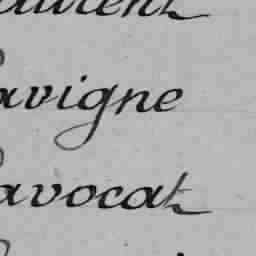 aurent
avigne
avocat